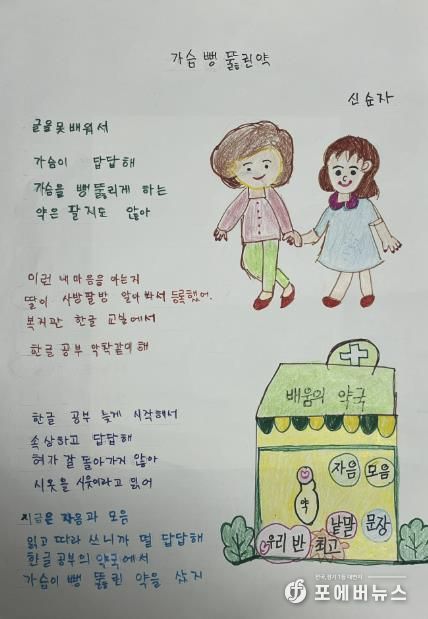 가슴 뻥 뚫린약
신순자
글을 못 배워서
가슴이 답답해
가슴을 뻥 뚫리게 하는
약은 팔지도 않아
이런 내마음을 아는지
딸이 사방팔방 알아봐서 등록했어.
복지관 한글 교실에서
한글 공부 악착같이 해
한글 공부 늦게 시작해서
속상하고 답답해
혀가 잘 돌아가지 않아
시옷을 시웃이라고 읽어
지금은 자음과 모음
읽고 따라 쓰니까 덜 답답해
한글 공부의 약국에서
가슴이 뻥 뚫린 약을 샀지
배움의 약국
자음 모음
약
낱말 문장
우리 반 최고
포에버뉴스